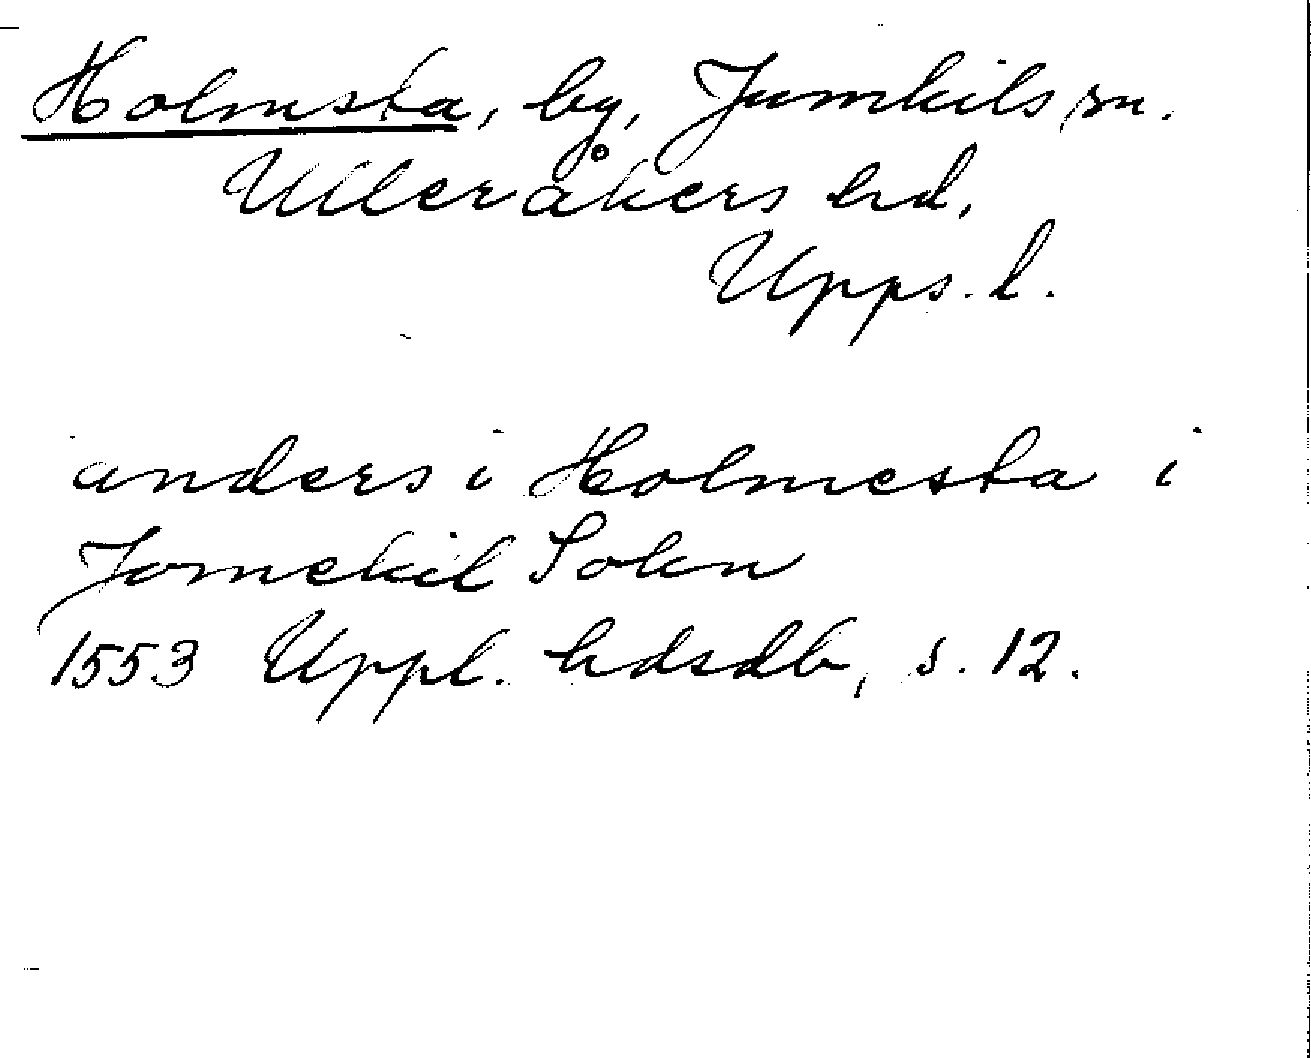 Holmsta, by, Jumkils sn.
Ulleråkers hd,
Upps. l.
anders i Holmesta i
Jomekil Sokn
1553 Uppl. hdsdb, s. 12.